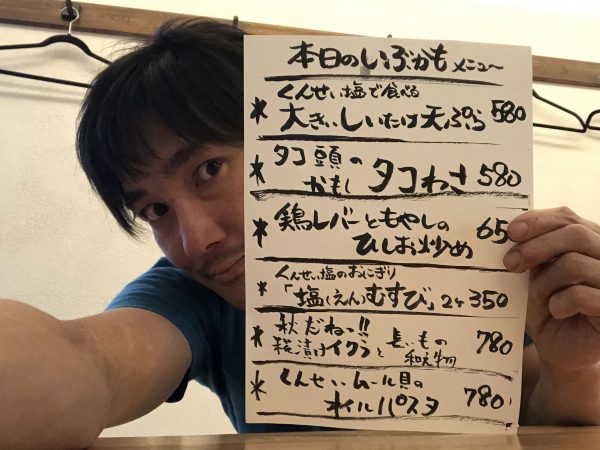 本日のいぶかもメニュー
くんせい塩で食べる
* 大きぃしいたけ天ぷら 580
* タコ頭の
かもし タコわさ 580
* 鶏レバーともやしの 65
ひしお炒め
くんせい塩のおにぎり
* 「塩(えん)むすび」2ヶ 350
* 秋だねっ!! 長いもの 780
糀漬けイクラと 和え物
* くんせいムール貝の
オイルパスタ 780